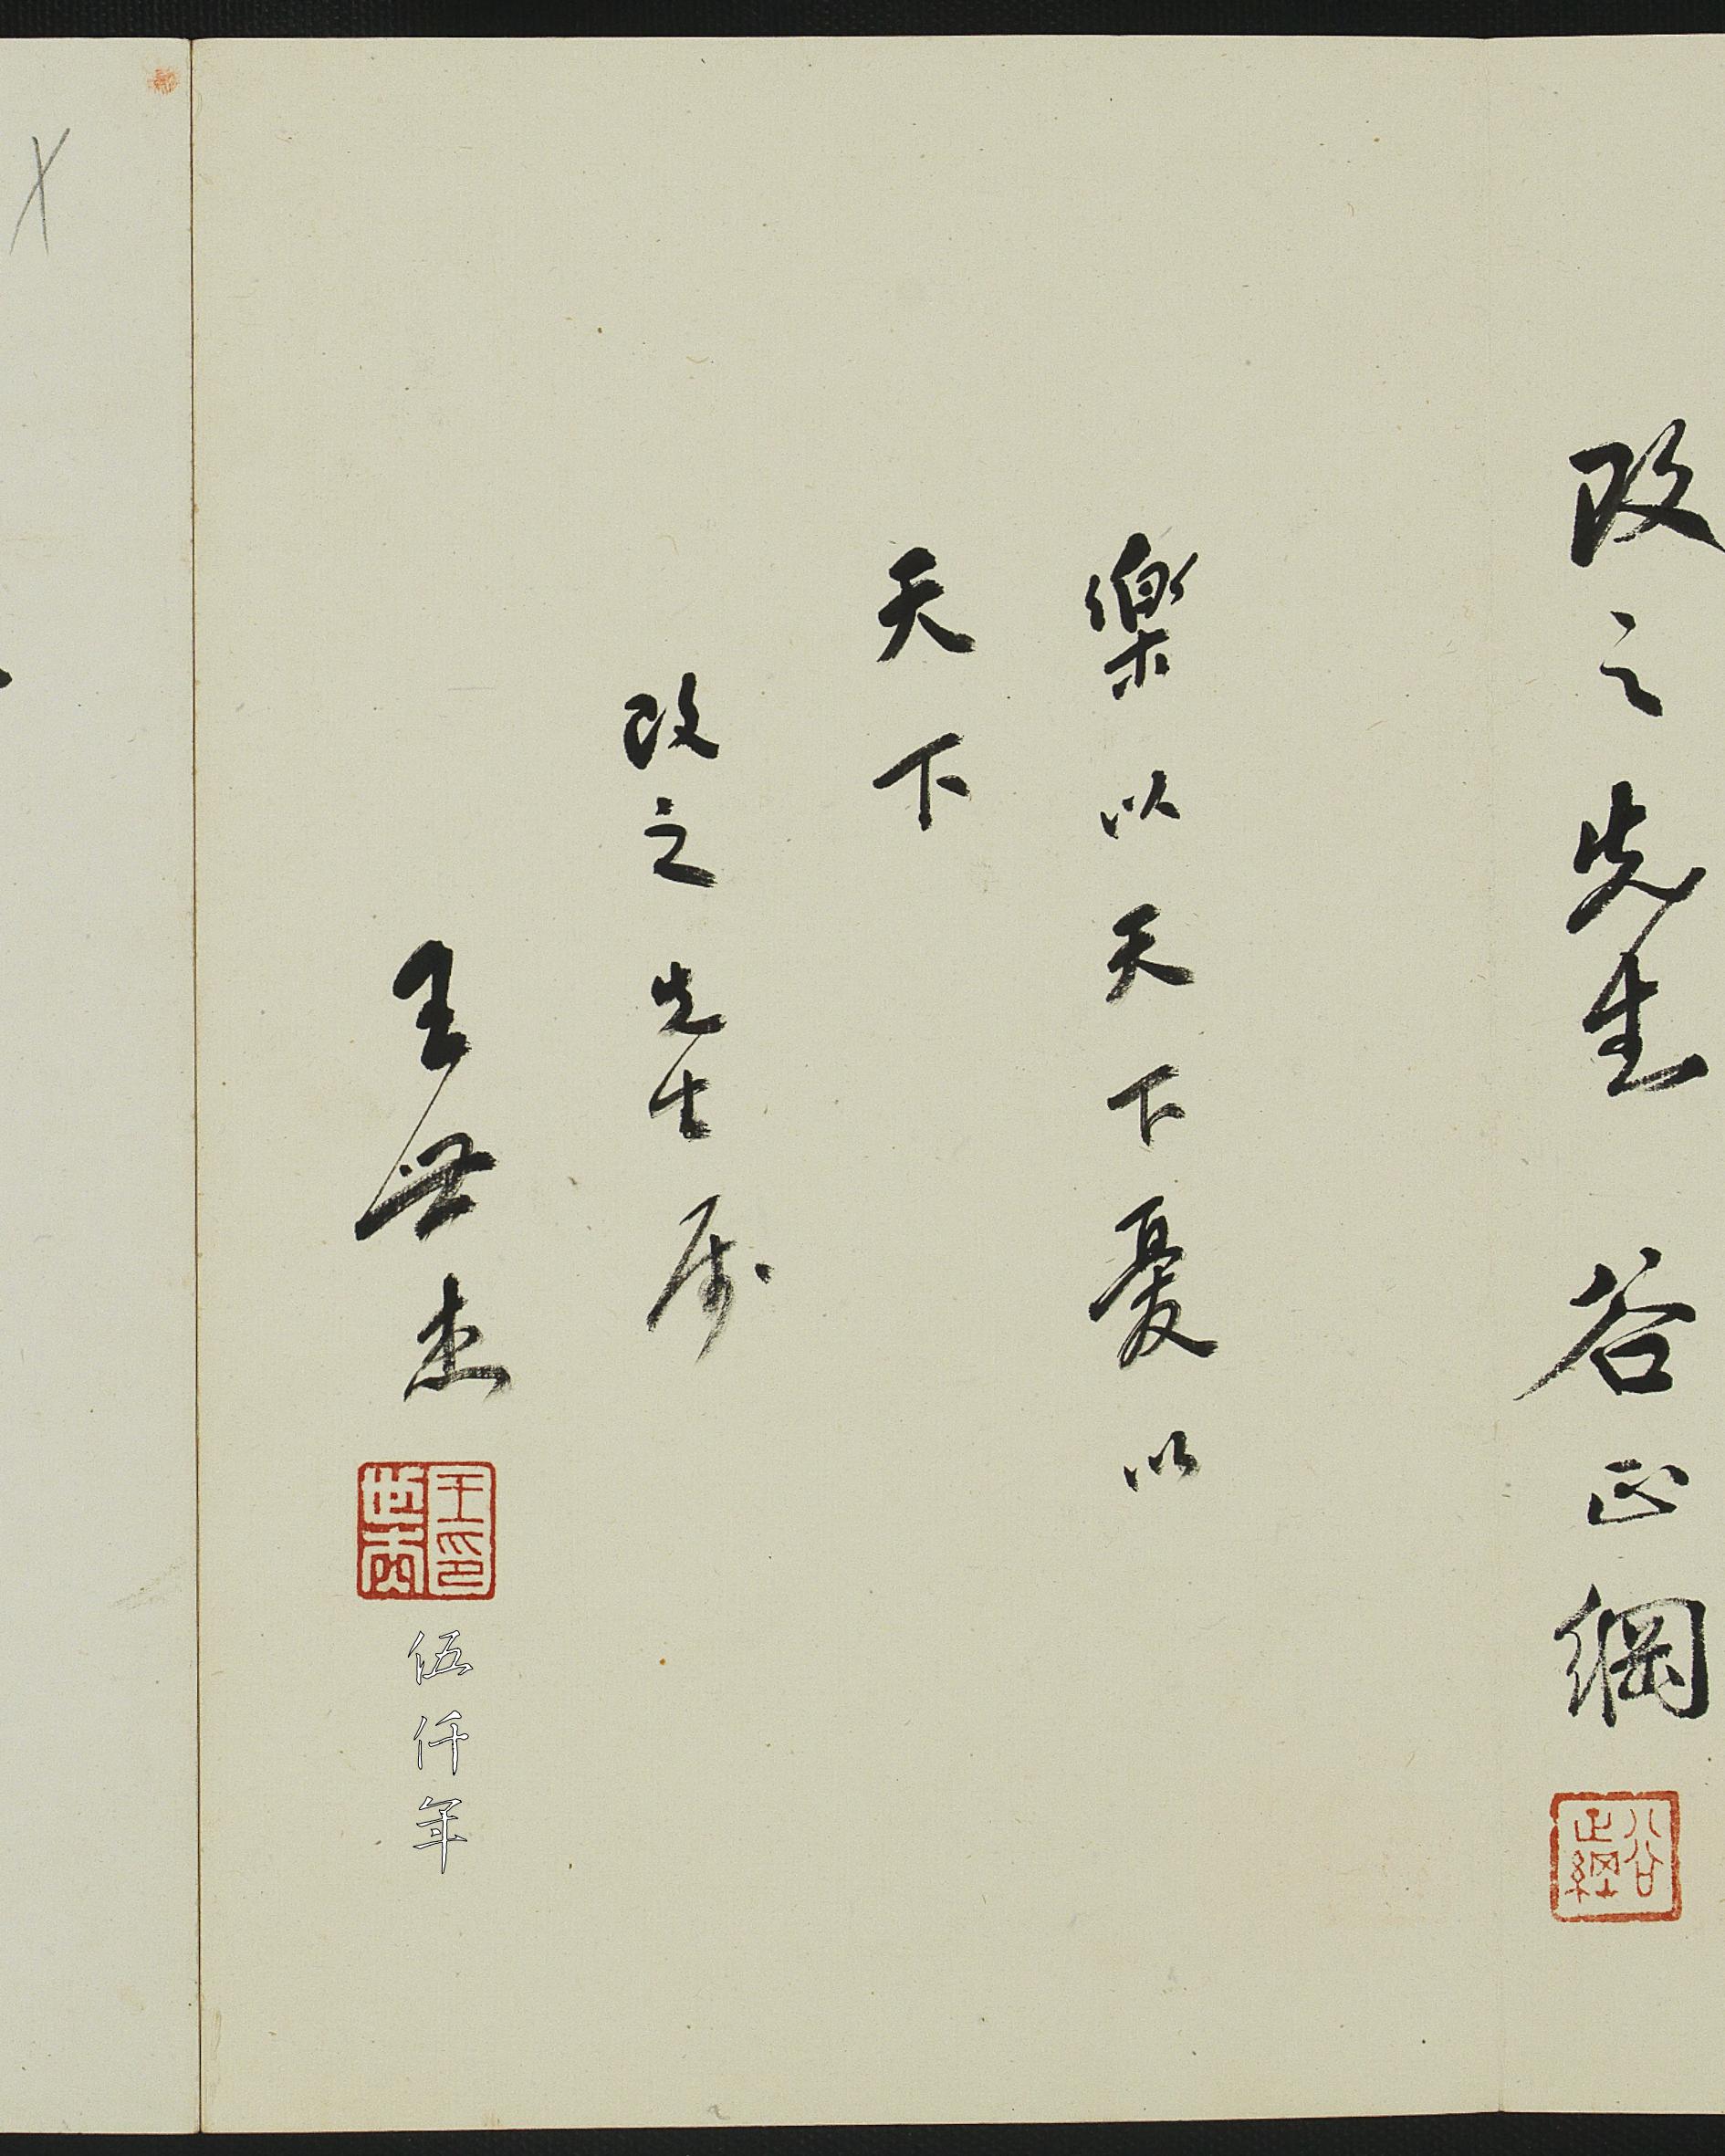 改之先生 谷正綱
谷正綱
樂以天下憂以
天下
改之先生属
王世杰
王世杰印
伍仟年